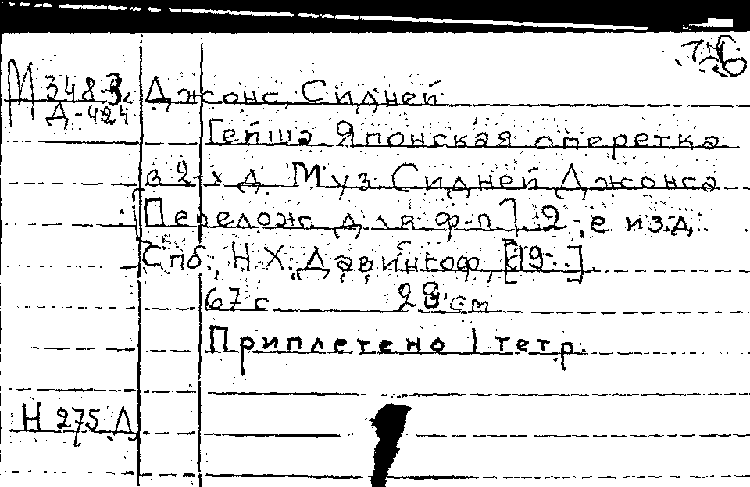 М 348-3 Джонс, Сидней
Д-424
Гейша Японская оперетка
в 2-х д. Муз Сидней Джонса
[Перелож для ф-п] 2-е изд
Спб., Н. Х. Давингоф, [19..].
67 с 28 см
Приплетено 1 тетр.
Н 275 Л